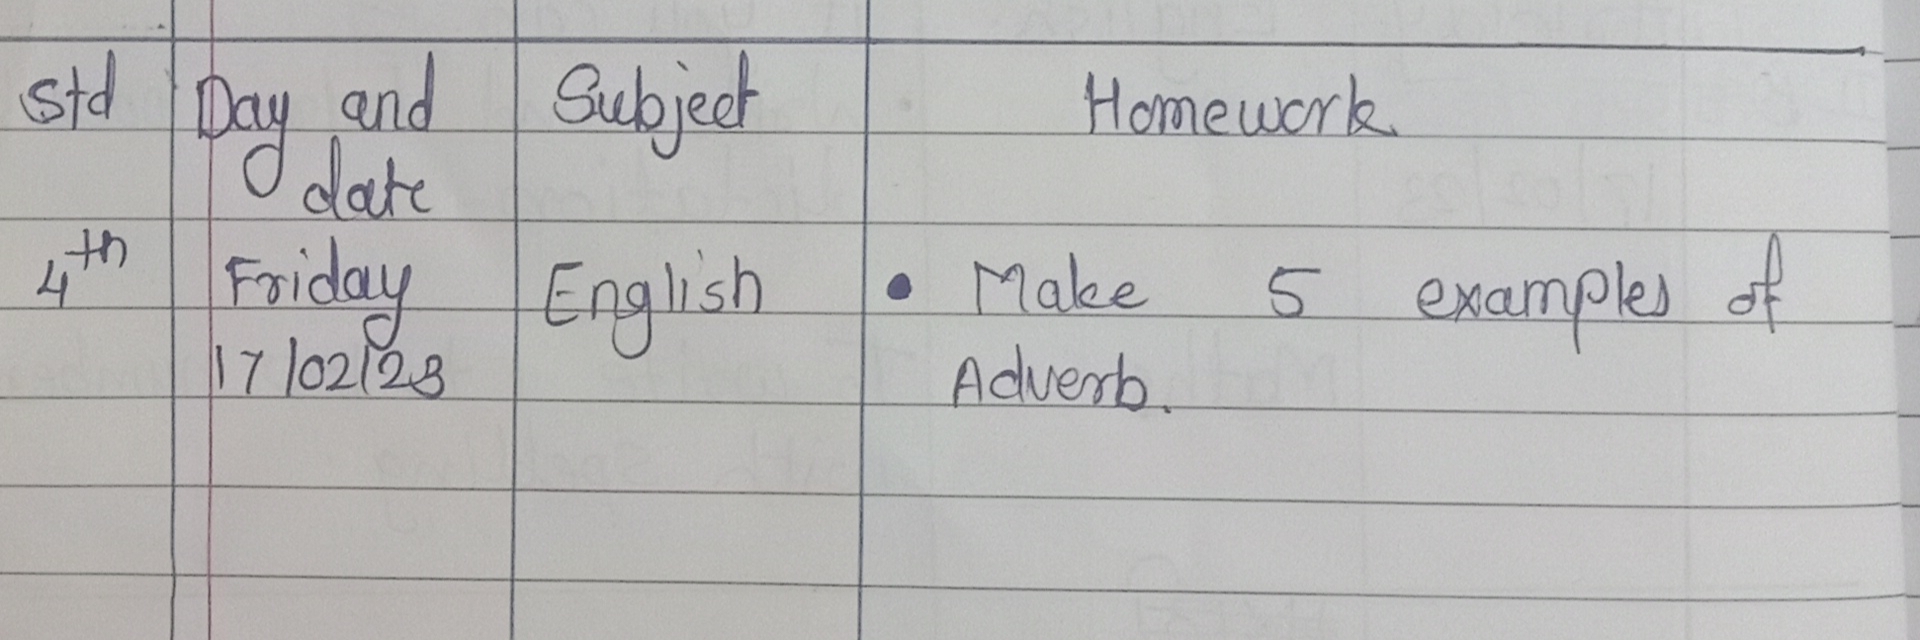 Std Day and Subject Homework
date
4th Friday English • Make 5 examples of
17/02/23 Adverb.